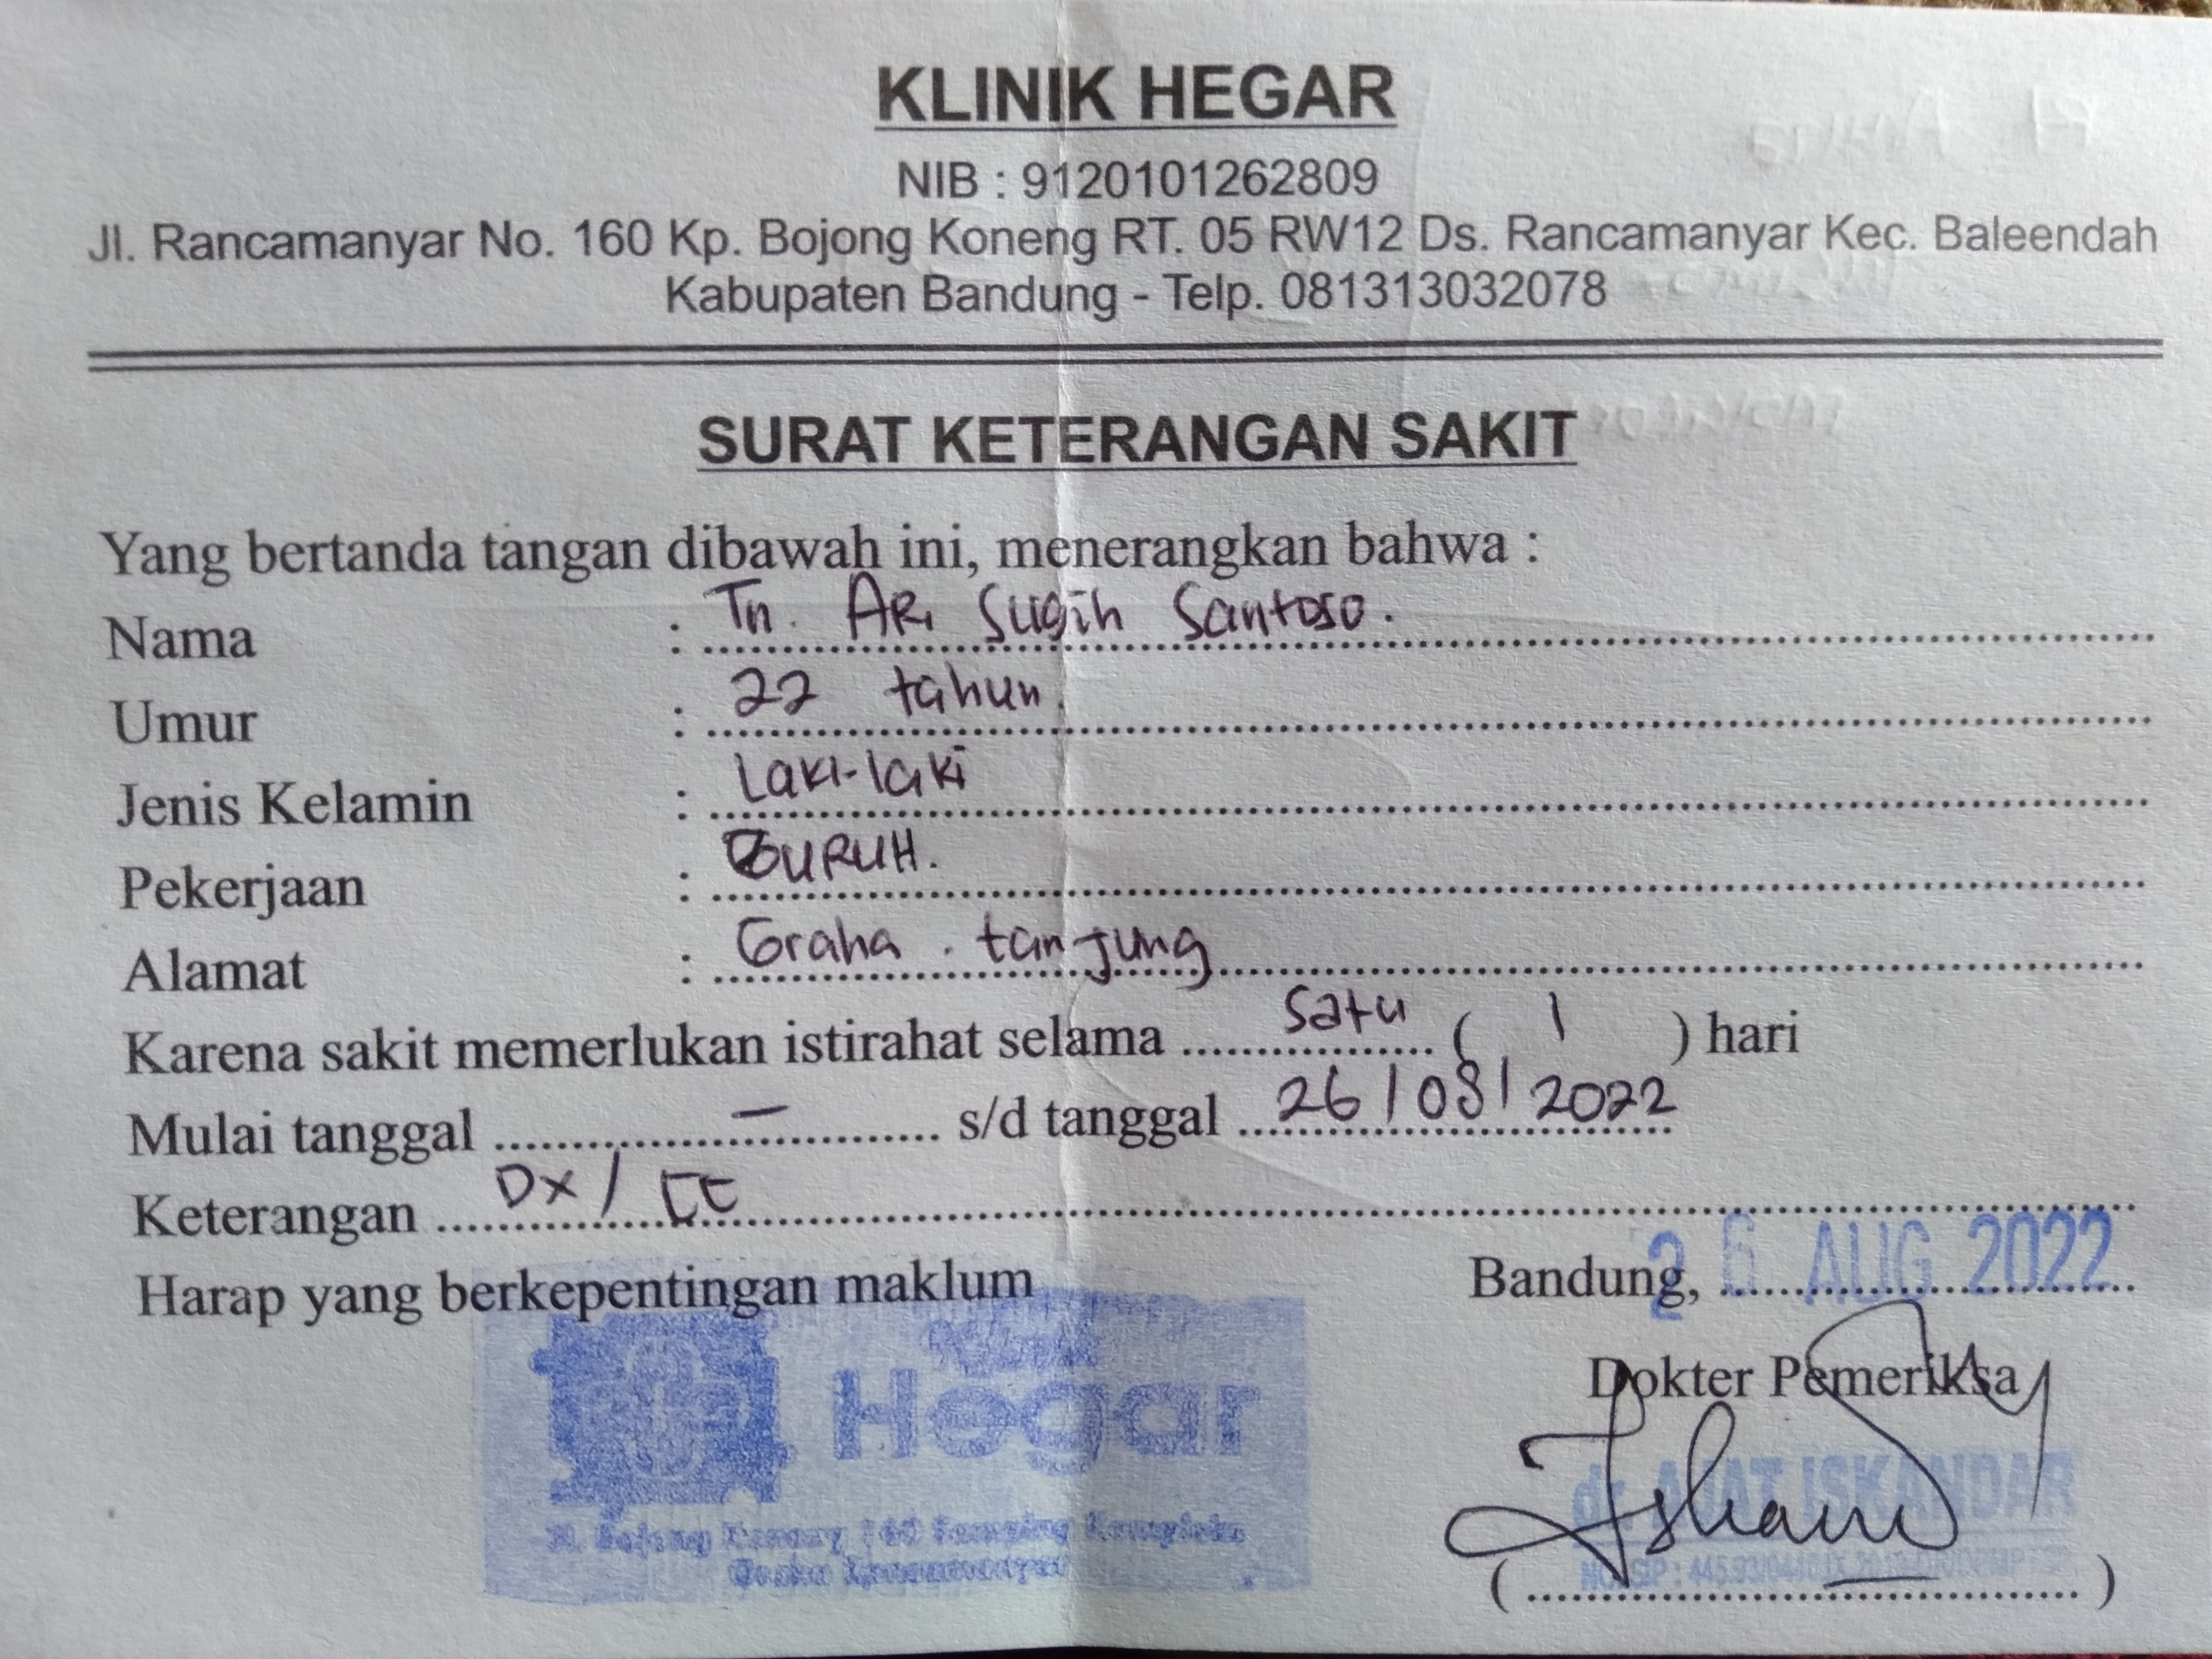 KLINIK HEGAR
NIB : 9120101262809
Jl. Rancamanyar No. 160 Kp. Bojong Koneng RT. 05 RW12 Ds. Rancamanyar Kec. Baleendah
Kabupaten Bandung - Telp. 081313032078
SURAT KETERANGAN SAKIT
Yang bertanda tangan dibawah ini, menerangkan bahwa :
Nama : Tn. ARi Sugih Santoso.
Umur : 22 tahun.
Jenis Kelamin : Laki-laki
Pekerjaan : BURUH.
Alamat : Graha . tanjung
Karena sakit memerlukan istirahat selama satu ( 1 ) hari
Mulai tanggal — s/d tanggal 26/08/2022
Keterangan Dx/
Harap yang berkepentingan maklum
Bandung, 26 AUG 2022
Dokter Pemeriksa
Hegar
ISKANDAR